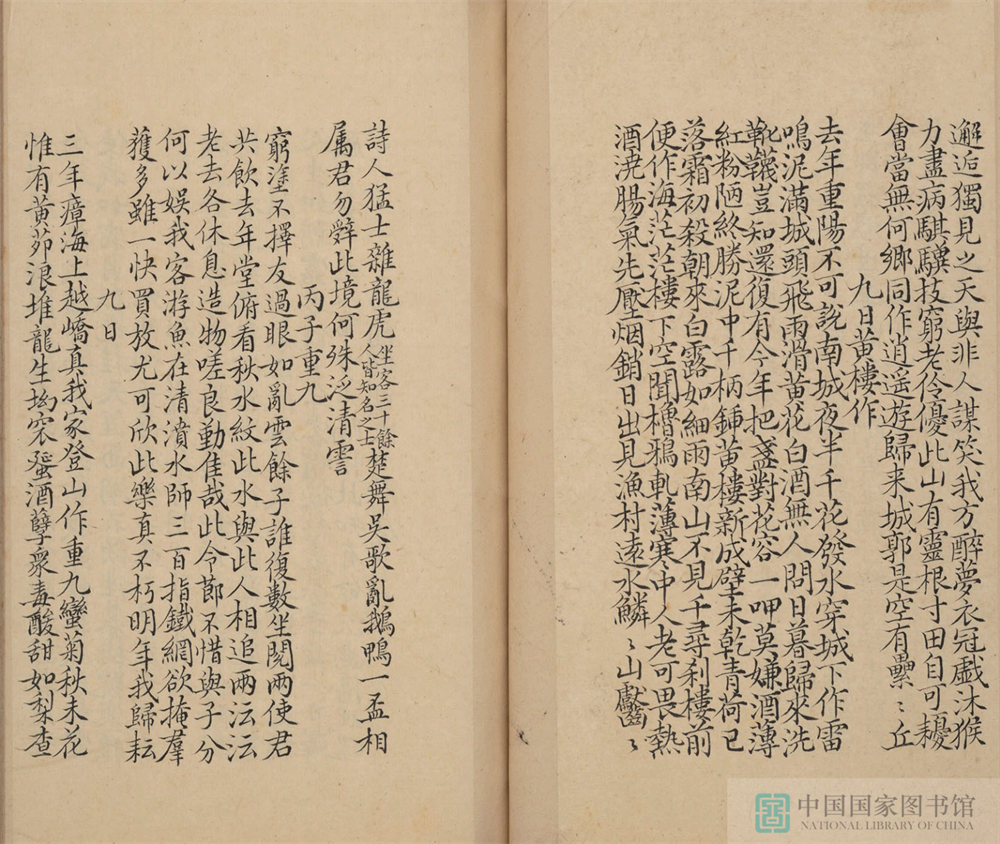 邂逅獨見之天與非人謀笑我方醉夢衣冠戲沐猴
力盡病騏驥技窮老伶優此山有靈根寸田自可耰
會當無何鄉同作逍遥遊歸来城郭是空有纍〻丘
九日黄樓作
去年重陽不可說南城夜半千花發水穿城下作雷
鳴泥滿城頭飛雨滑黄花白酒無人問日暮歸來洗
靴韈豈知還復有今年把盞對花容一呷莫嫌酒薄
紅粉陋終勝泥中千柄鍤黄樓新成壁未乾青荷已
落霜初殺朝來白露如細雨南山不見千尋刹樓前
便作海茫茫樓下空聞櫓鴉軋薄寒中人老可畏熱
酒澆腸氣先壓烟銷日出見漁村遠水鱗〻山齾〻
詩人猛士雜龍虎坐客三十餘人皆知名之士楚舞吳歌亂鵝鴨一盃相
属君勿辭此境何殊泛清霅
丙子重九
窮塗不擇友過眼如亂雲餘子誰復數坐閱兩使君
共飲去年堂俯看秋水紋此水與此人相追兩沄沄
老去各休息造物嗟良勤佳哉此令節不惜與子分
何以娛我客游魚在清濆水師三百指鐵網欲掩羣
獲多雖一快買放尤可欣此樂真不朽明年我歸耘
九日
三年瘴海上越嶠真我家登山作重九蠻菊秋未花
惟有黄茆浪堆龍生坳窊蜑酒孽衆毒酸甜如梨查
中国国家图书馆
NATIONAL LIBRARY OF CHINA